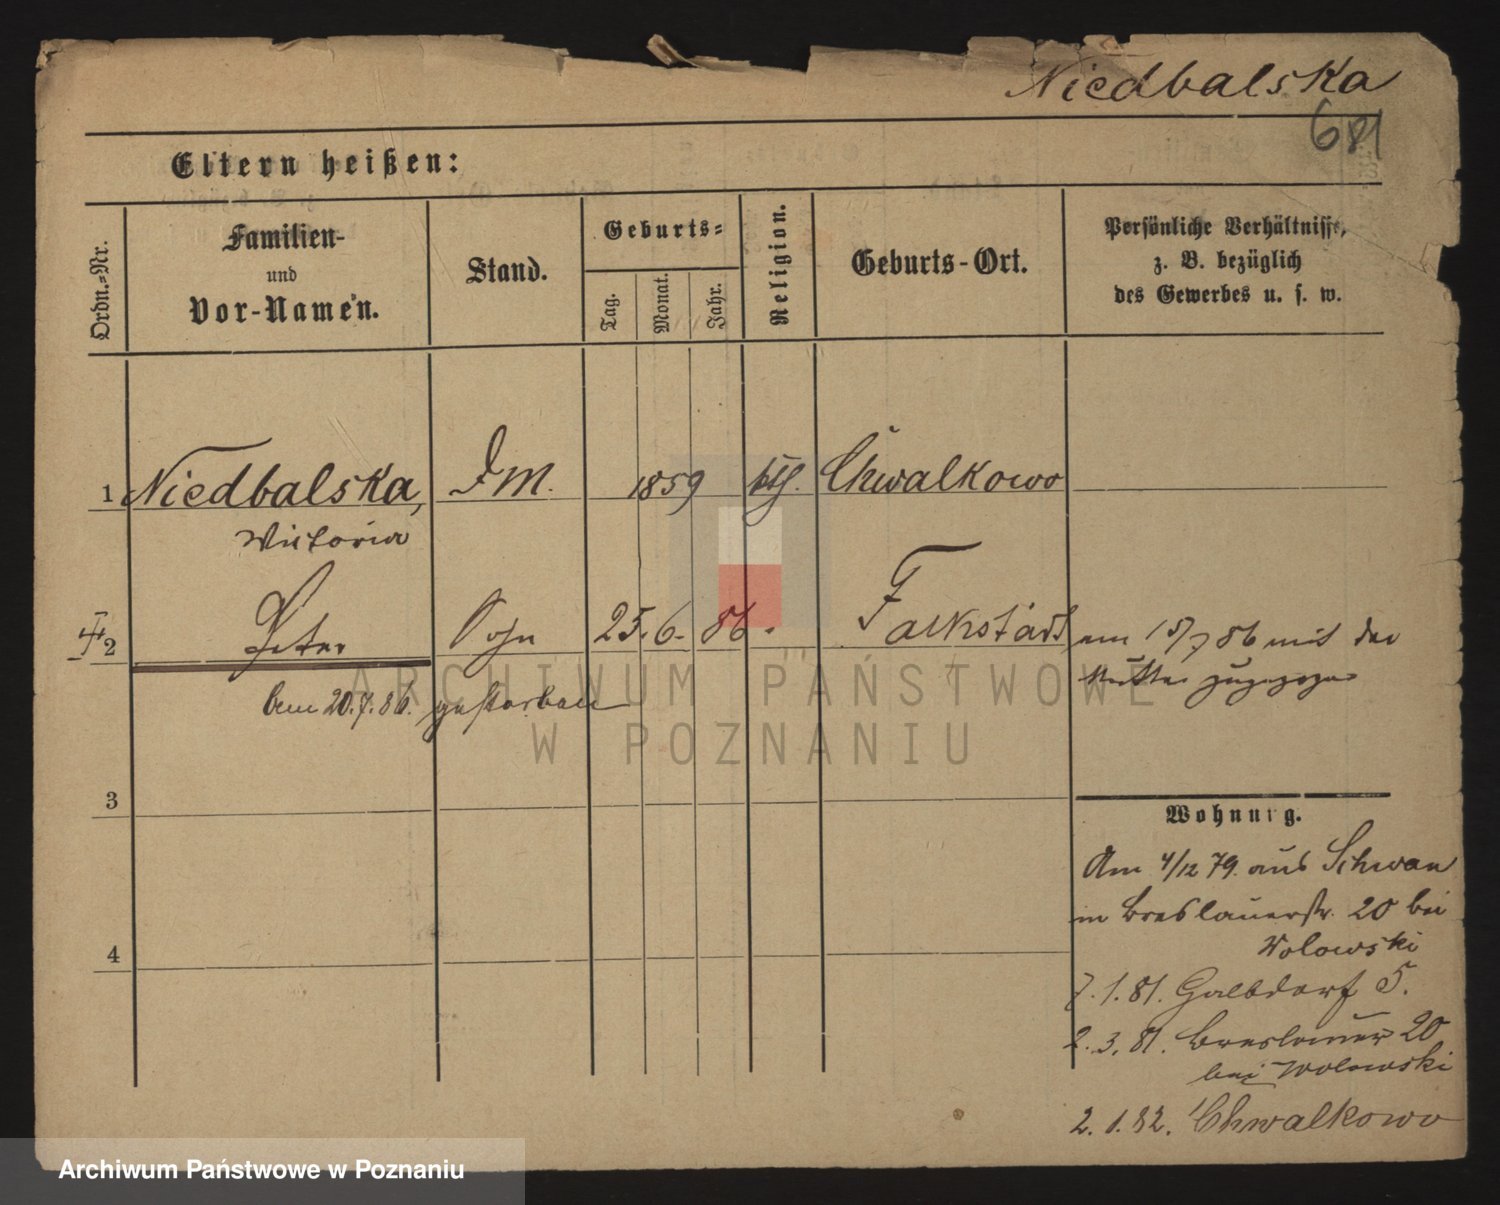 Niedbalska
681
Eltern heißen:
Ordn.-Nr.
Familien-
und
Vor-Namen.
Stand.
Geburts-
Tag.
Monat.
Jahr.
Religion.
Geburts-Ort.
Persönliche Verhältnisse,
z. B. bezüglich
des Gewerbes u. s. w.
1 Niedbalska, DM. 1859 kth. Chwalkowo
Victoria
2 Peter Sohn 25. 6. 86. Falkstädt am 15/7 86 mit der
Mutter zugezogen
20.7.86. gestorben
3
Wohnung.
Am 4/12 79. aus Schwan
in Breslauerstr. 20 bei
Wolowski
4
7.1.81. 5.
2.3.81. Breslauer 20
bei Wolowski
2.1.82. Chwalkowo
ARCHIWUM PAŃSTWOWE
W POZNANIU
Archiwum Państwowe w Poznaniu